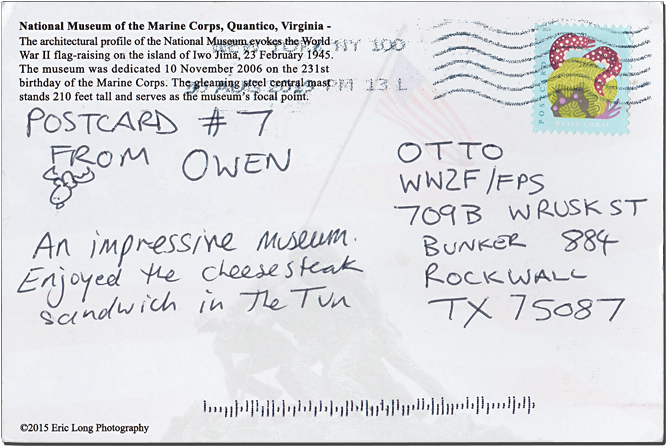 National Museum of the Marine Corps, Quantico, Virginia -
The architectural profile of the National Museum evokes the World
War II flag-raising on the island of Iwo Jima, 23 February 1945.
The museum was dedicated 10 November 2006 on the 231st
birthday of the Marine Corps. The gleaming steel central mast
stands 210 feet tall and serves as the museum's focal point.
NEW YORK NY 100
PM 13 L
POSTCARD
BRAIN CORAL
POSTCARD #7
FROM OWEN
An impressive museum.
Enjoyed the cheesesteak
sandwich in The Tun
OTTO
WW2F/FPS
709B W RUSK ST
BUNKER 884
ROCKWALL
TX 75087
©2015 Eric Long Photography